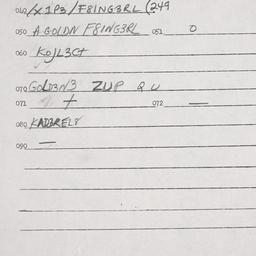 040 /X1P3/F8ING3RL (249
050 A GOLDN F8ING3RL 051 0
060 KOJL3Ct
070 GOLD3N3 ZUP QU
071 + 072 —
080 KAD3REL8
090 —